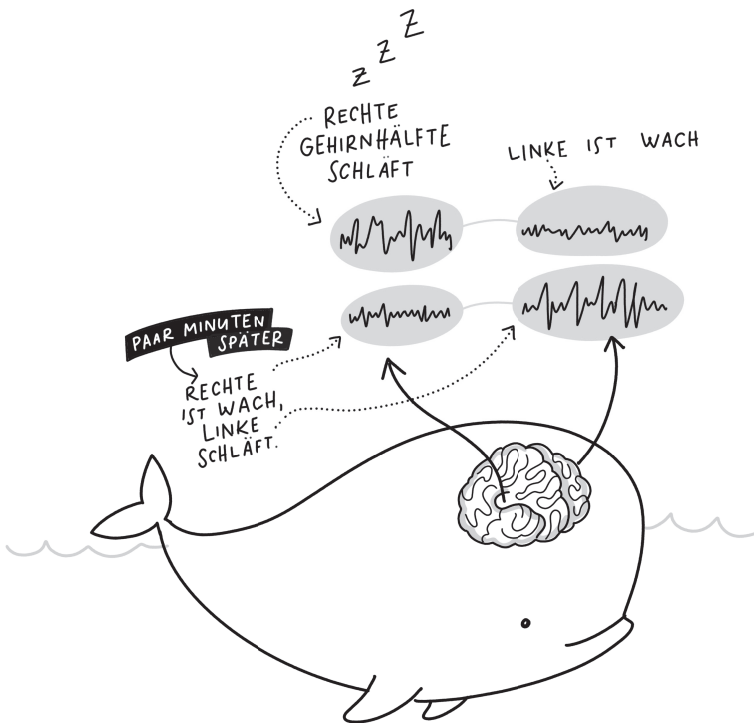 Z Z Z
RECHTE
GEHIRNHÄLFTE
SCHLÄFT
LINKE IST WACH
PAAR MINUTEN
SPÄTER
RECHTE
IST WACH,
LINKE
SCHLÄFT.